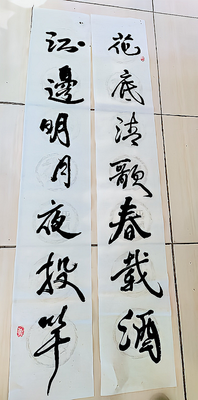 花底清歌春載酒
江邊明月夜投竿